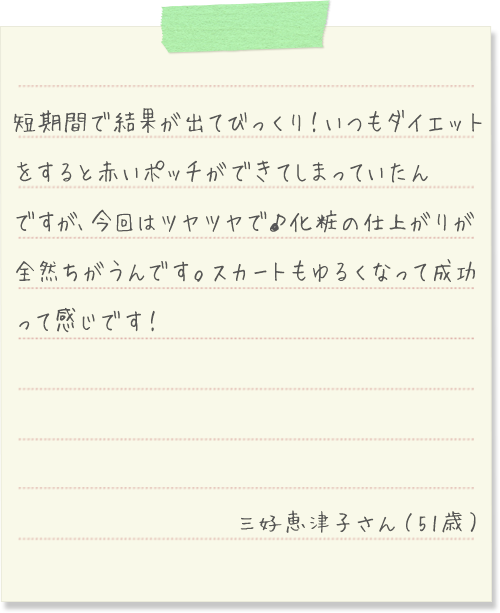 短期間で結果が出てびっくり!いつもダイエット
をすると赤いポッチができてしまっていたん
ですが、今回はツヤツヤで♪化粧の仕上がりが
全然ちがうんです。スカートもゆるくなって成功
って感じです!
三好恵津子さん(51歳)